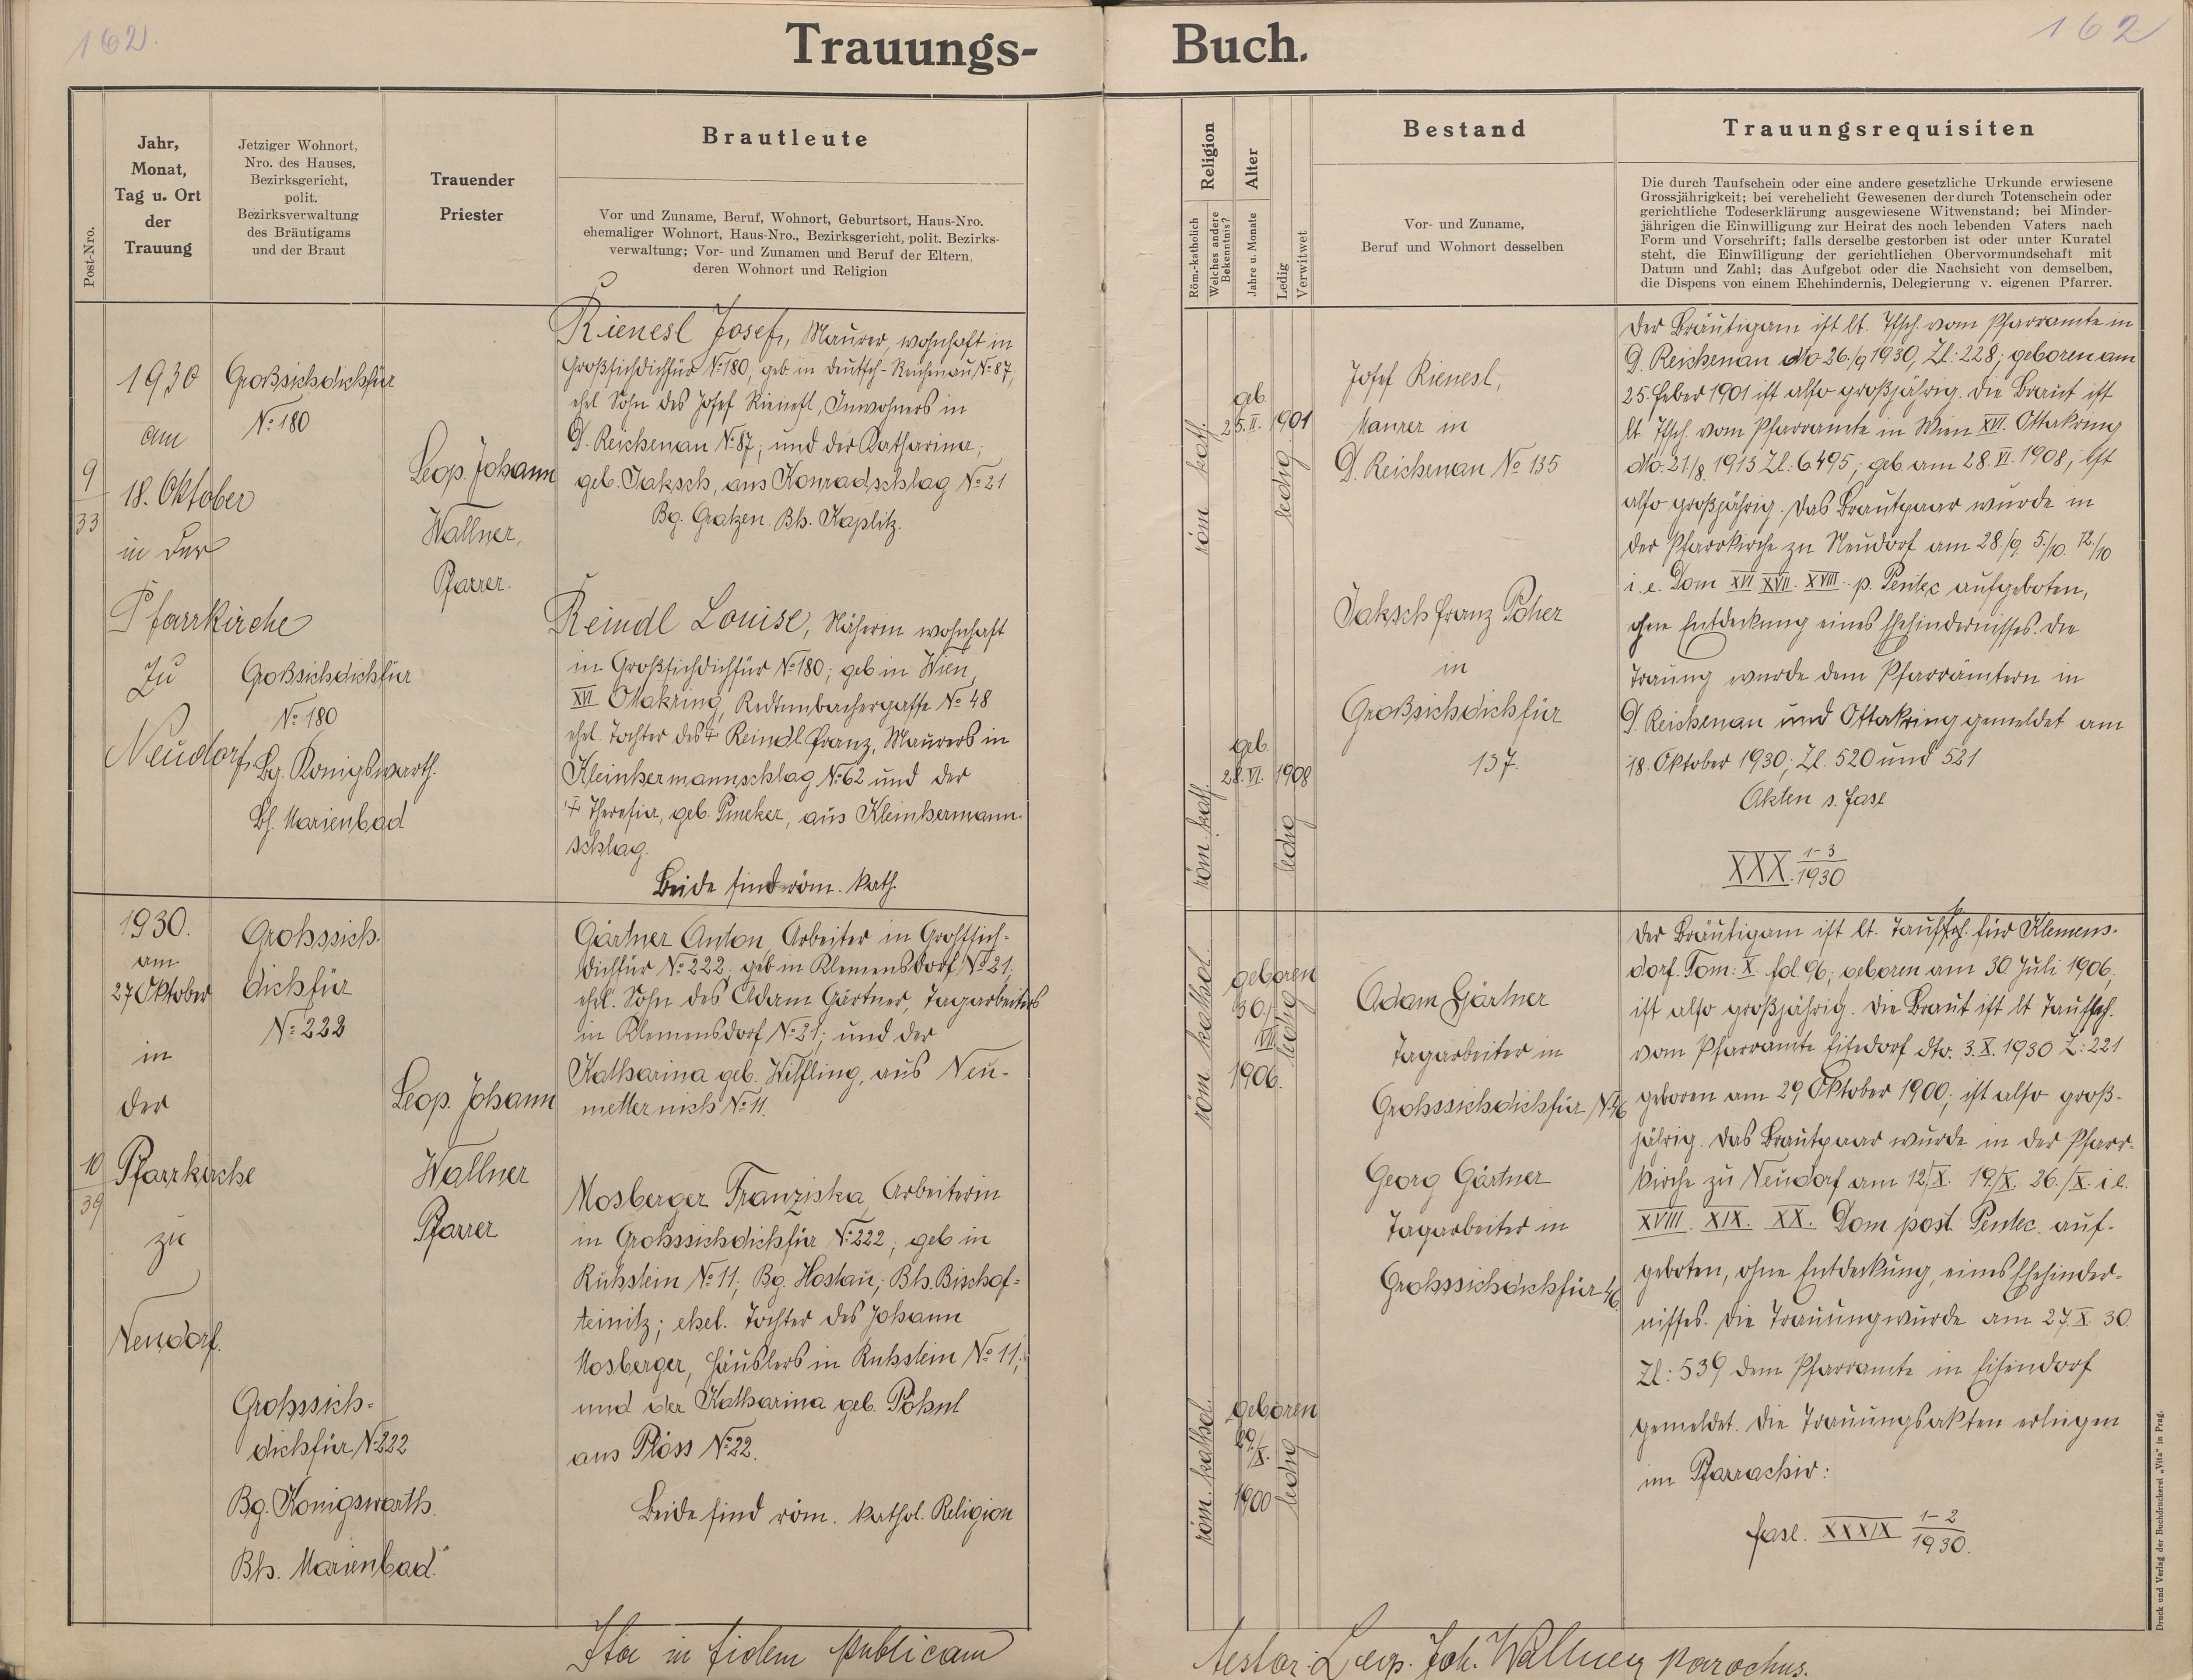 162.
162
Trauungs-
Buch.
Post-Nro.
Jahr,
Monat,
Tag u. Ort
der
Trauung
Jetziger Wohnort,
Nro. des Hauses,
Bezirksgericht,
polit.
Bezirksverwaltung
des Bräutigams
und der Braut
Trauender
Priester
Brautleute
Vor und Zuname, Beruf, Wohnort, Geburtsort, Haus-Nro.
ehemaliger Wohnort, Haus-Nro., Bezirksgericht, polit. Bezirks-
verwaltung; Vor- und Zunamen und Beruf der Eltern,
deren Wohnort und Religion
9
33
1930
am
18. Oktober
in der
Pfarrkirche
zu
Neudorf
Großsichdichfür
№ 180
Großsichdichfür
№ 180
Bg. Königswarth.
Bh. Marienbad
Leop. Johann
Wallner,
Pfarrer.
Rienesl Josef, Maurer, wohnhaft in
Großsichdichfür № 180, geb in Deutsch-Reichenau № 87,
ehel Sohn des Josef Rienesl, Inwohners in
D. Reichenau № 87, und der Katharina,
geb. Jaksch, aus Konradschlag № 21
Bg. Gratzen. Bh. Kaplitz.
Reindl Louise, Näherin wohnhaft
in Großsichdichfür № 180; geb in Wien,
XVI Ottakring, Redtenbachergasse № 48
ehel. Tochter des ‡ Reindl Franz, Maurers in
Kleinhermannschlag № 62 und der
‡ Theresia, geb. , aus Kleinhermann-
schlag.
Beide sind röm. kath.
10
39
1930.
am
27 Oktober
in
der
Pfarrkirche
zu
Neudorf.
Grohssich-
dichfür
№ 222
Grohssich-
dichfür № 222
Bg. Königswarth.
Bh. Marienbad.
Leop. Johann
Wallner
Pfarrer
Gärtner Anton, Arbeiter in Grohssich-
dichfür № 222, geb in Klemensdorf № 21;
ehel. Sohn des Adam Gärtner, Tagarbeiters
in Klemensdorf № 21; und der
Katharina geb. Wilfling, aus Neu-
metternich № 11.
Mosberger Franziska, Arbeiterin
in Grohssichdichfür № 222; geb in
Ruhstein № 11; Bg. Hostau; Bh. Bischof-
teinitz; ehel. Tochter des Johann
Mosberger, Häuslers in Ruhstein № 11;
und der Katharina geb. Pöhnl
aus Plöss № 22.
Beide sind röm. kathol. Religion
Ita in fidem publicam
Religion
Röm.-katholisch
Welches andere
Bekentnis?
Alter
Jahre u. Monate
Ledig
Verwitwet
Bestand
Vor- und Zuname,
Beruf und Wohnort desselben
Trauungsrequisiten
Die durch Taufschein oder eine andere gesetzliche Urkunde erwiesene
Grossjährigkeit; bei verehelicht Gewesenen der durch Totenschein oder
gerichtliche Todeserklärung ausgewiesene Witwenstand; bei Minder-
jährigen die Einwilligung zur Heirat des noch lebenden Vaters nach
Form und Vorschrift; falls derselbe gestorben ist oder unter Kuratel
steht, die Einwilligung der gerichtlichen Obervormundschaft mit
Datum und Zahl; das Aufgebot oder die Nachsicht von demselben,
die Dispens von einem Ehehindernis, Delegierung v. eigenen Pfarrer.
röm kath.
geb.
25. II. 1901
ledig
röm. kath.
geb.
28. VI. 1908
ledig
Josef Rienesl,
Maurer in
D. Reichenau № 135
Jaksch Franz
in
Großsichdichfür
137.
Der Bräutigam ist lt. Tfsch. vom Pfarramte in
D. Reichenau dto 26./9 1930, Zl: 228; geboren am
25. Feber 1901 ist also großjährig. Die Braut ist
lt Tfsch. vom Pfarramte in Wien XVI. Ottakring
dto. 21/8. 1913 Zl: 6495; geb am 28. VI. 1908, ist
also großjährig. Das Brautpaar wurde in
der Pfarrkirche zu Neudorf am 28./9. 5./10. 12./10
i. e. Dom XVI XVII. XVIII. p. Pentec aufgeboten,
ohne Entdeckung eines Ehehindernisses. Die
Trauung wurde dem Pfarrämtern in
D. Reichenau und Ottakring gemeldet am
18. Oktober 1930; Zl. 520 und 521
Akten s. fasc
XXX. 1-3
1930
röm. kathol.
geboren
30./
VII
1906.
ledig
röm. kathol.
geboren
29./
X.
1900
ledig
Adam Gärtner
Tagarbeiter in
Grohssichdichfür № 46
Georg Gärtner
Tagarbeiter in
Grohssichdichfür 46
Der Bräutigam ist lt. Taufsch. für Klemens-
dorf. Tom: X. fol. 96; geboren am 30 Juli 1906,
ist also großjährig. Die Braut ist lt Taufsch.
vom Pfarramte Eisendorf dto. 3. X. 1930 Z: 221
geboren am 29 Oktober 1900; ist also groß-
jährig. Das Brautpaar wurde in der Pfarr-
kirche zu Neudorf am 12./X. 19./X. 26./X. i e.
XVIII. XIX. XX. Dom post. Pentec. auf-
geboten, ohne Entdeckung, eines Ehehinder-
nisses. Die Trauung wurde am 27. X. 30.
Zl: 539 dem Pfarramte in Eisendorf
gemeldet. Die Trauungsakten erliegen
im Pfarrachiv:
fasc. XXXIX 1-2
1930.
testor: Leop. Joh. Wallner parochus.
Druck und Verlag der Buchdruckerei „Vita" in Prag.